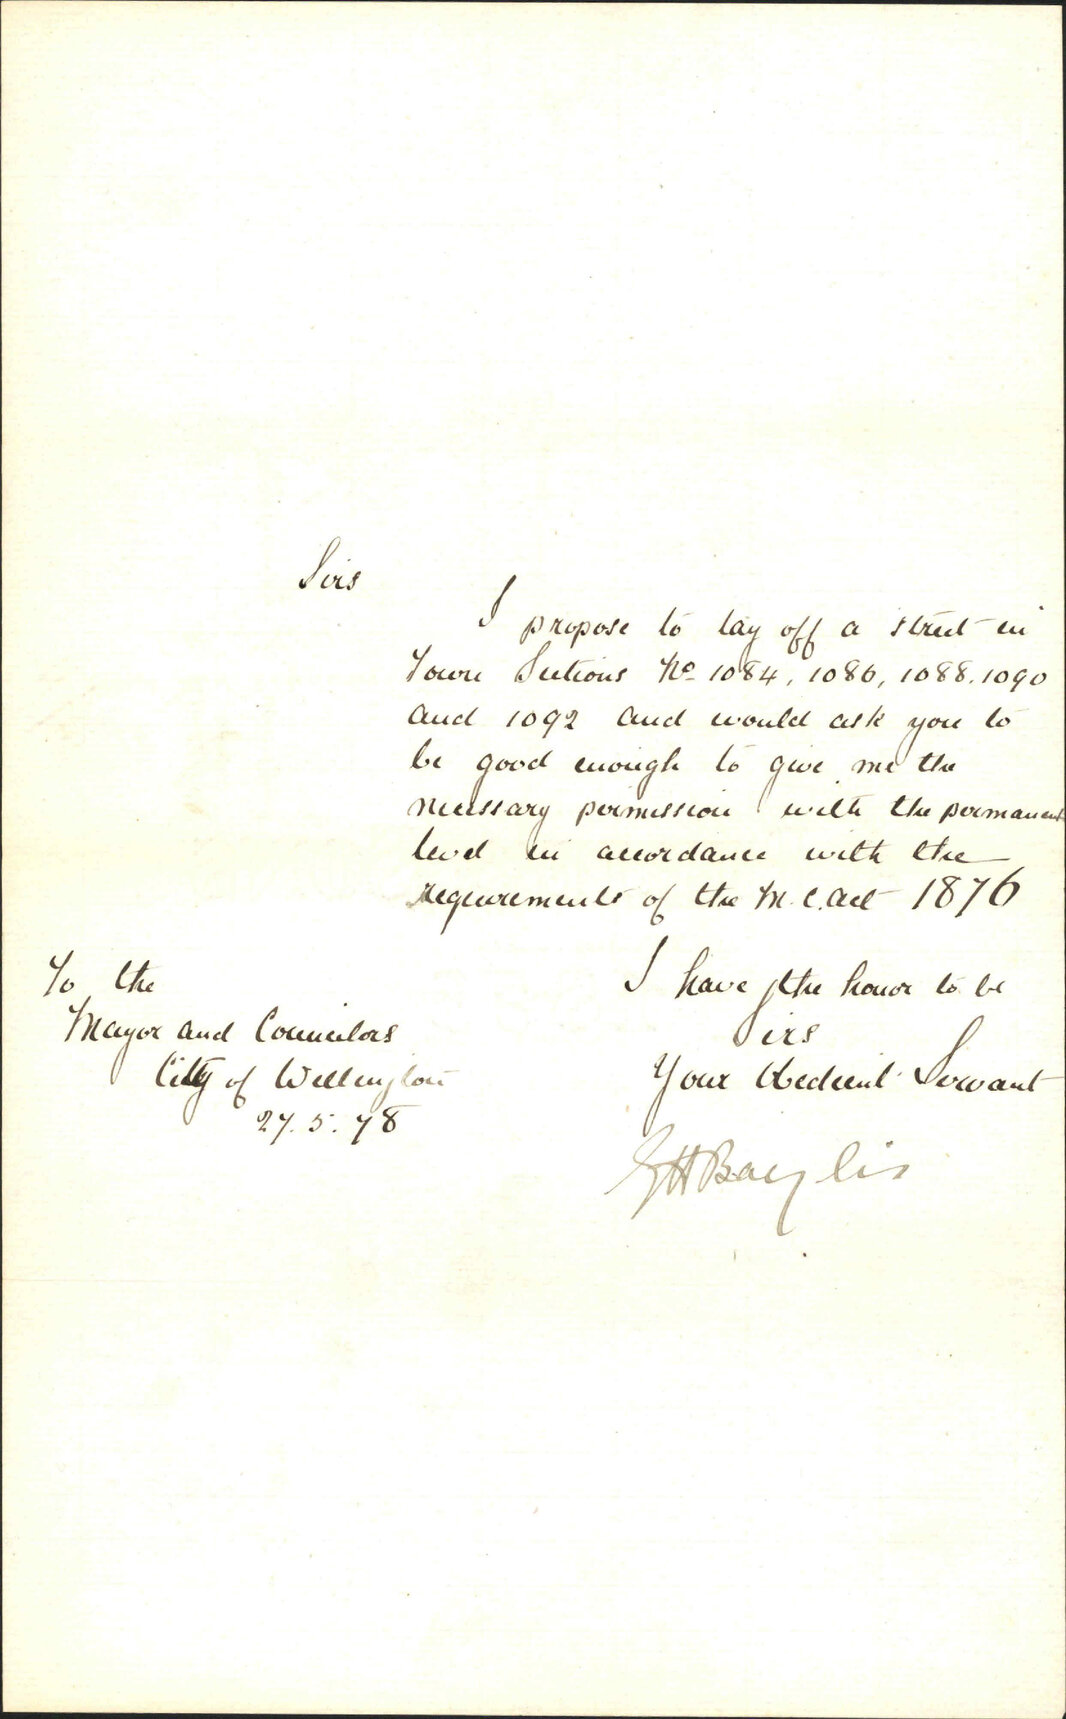 Sirs
I propose to lay off a street in
Town Sections No 1084, 1086, 1088. 1090
and 1092 and would ask you to
be good enough to give me the
necessary permission with the permanent
level in accordance with the
requirements of the M. C. Act 1876
I have the honor to be
Sirs
Your Obedient Servant
G H Baylis
To the
Mayor and Councilors
City of Wellington
27. 5. 78